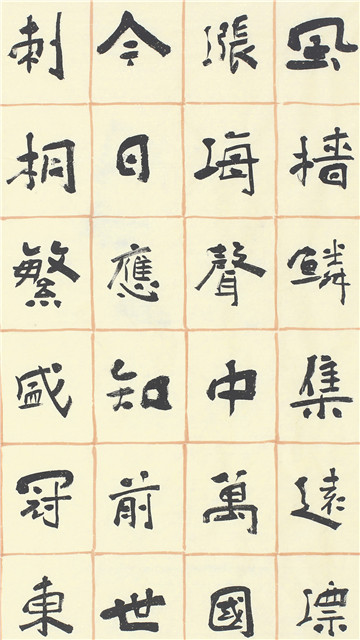 風檣鱗集遠漂
漲海聲中萬國
今日應知前世
刺桐繁盛冠東